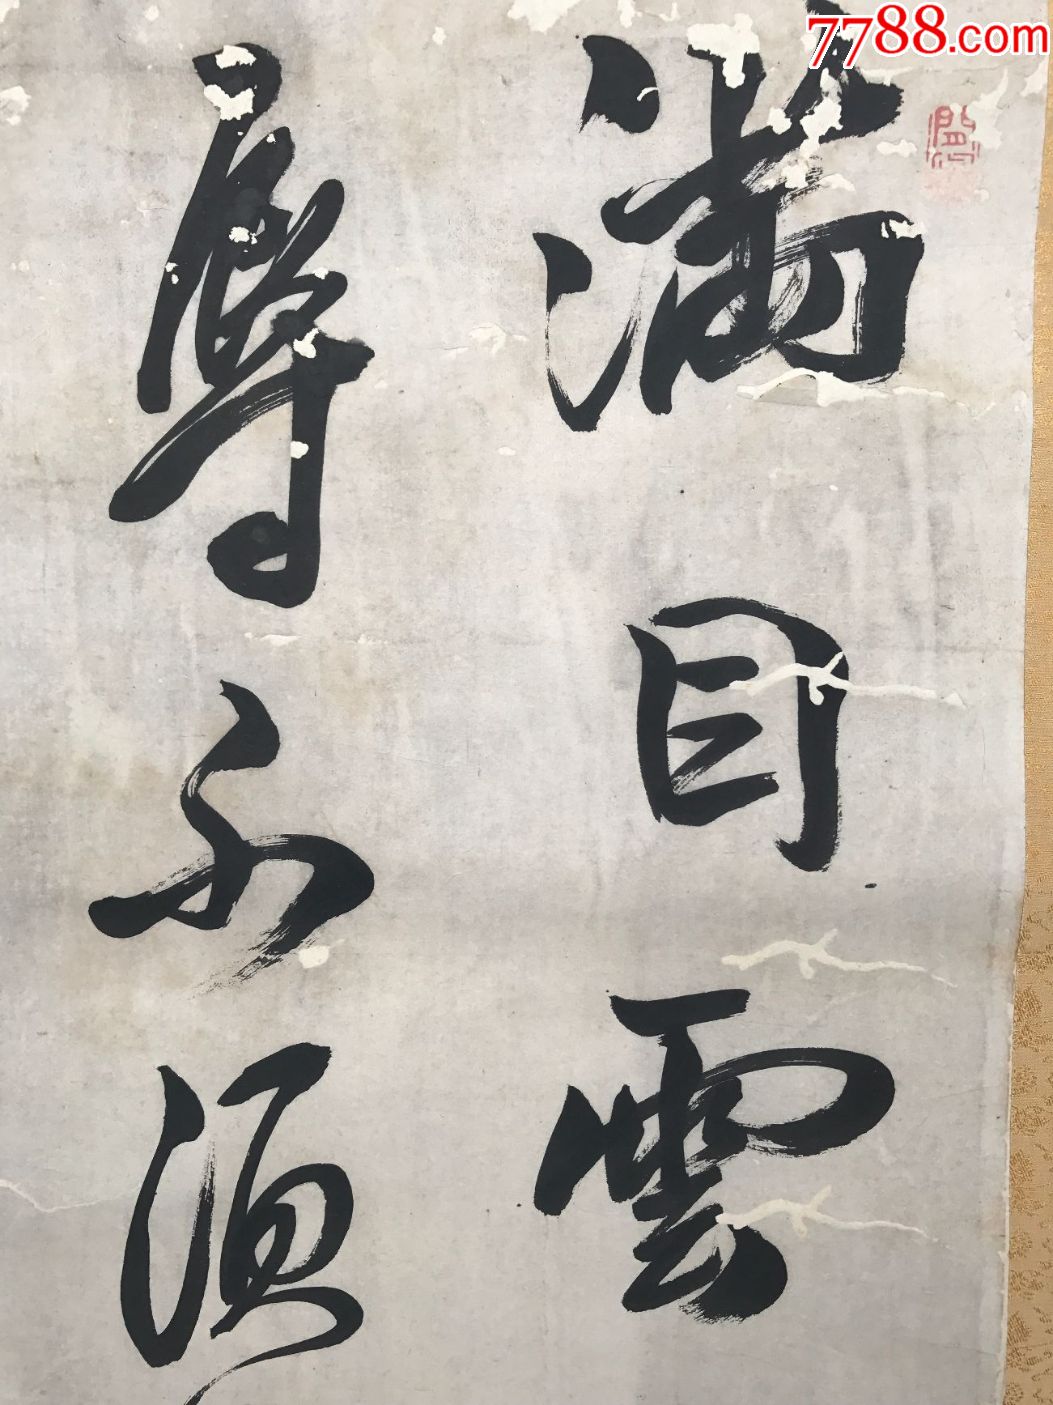 7788.com
滿目雲
辱不須